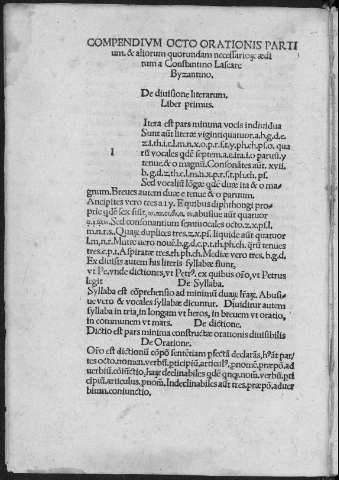 COMPENDIVM OCTO ORATIONIS PARTI
um. & aliorum quorundam necessarioꝝ ædi
tum a Constantino Lascare
Byzantino.
De diuisione literarum.
Liber primus.
Itera est pars minima vocis indiuidua
Sunt aūt literæ vigintiquatuor. a.b.g.d.e.
z.i.th.i.c.l.m.n.x.o.p.r.s.t.y.ph.ch.ps.o. qua
l rū vocales qdē septem. a.e.ita.i.o paruū.y
tenue. & o magnū. Consonātes aūt. xvii.
b.g.d.z.th.c.l.m.n.x.p.r.s.t.ph.ch.ps.
Sed vocaliū lōgæ qdē duæ ita & o ma-
gnum. Breues autem duæ e tenue & o paruum.
Ancipites vero tres a i y. Equibus diphthongi pro-
prie qdē sex fiūt, abusiue aūt quatuor
Sed consonantium semiuocales octo. z.x.ps.l.
m.n.r.s. Quaꝝ duplices tres. z.x.ps. liquide aūt quatuor
l.m.n.r. Mutæ uero nouē. b.g.d.c.p.t.th.ph.ch. qrū tenues
tres. c.p.t. Aspiratæ tres. th.ph.ch. Mediæ vero tres. b.g.d.
Ex diuisis autem his literis syllabæ fiunt.
vt Pe, vnde dictiones, vt Petrꝰ. ex quibus orō, vt Petrus
legit De Syllaba.
Syllaba est cōprehensio ad minimū duaꝝ lraꝝ. Abusi-
ue vero & vocales syllabæ dicuntur. Diuiditur autem
syllaba in tria, in longam vt heros, in breuem vt oratio,
in communem vt mars. De dictione.
Dictio est pars minima constructæ orationis diuisibilis
De Oratione.
Orō est dictionū cōpō sententiam pfectā declarās, hꝰ aūt par-
tes octo. nomen. verbū. pticipiū. articulꝰ. pnomē. præpō. ad
uerbiū. cōiūctio. haꝝ declinabiles qdē qnqꝫ nom. verbū. pti
cipiū. articulus. pnom. Indeclinabiles aūt tres. præpō. aduer
bium. coniunctio.